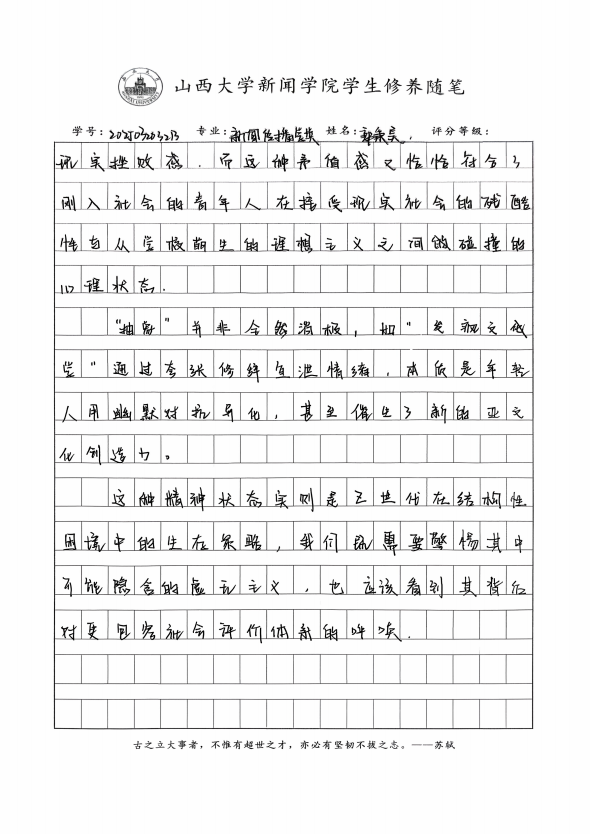 山西大学新闻学院学生修养随笔
学号: 202503203213 专业: 新闻传播学类 姓名: 评分等级:
现实挫败感.而这种矛盾感又恰恰符合了
刚入社会的青年人在接受现实社会的残酷
性与从学校萌生的理想主义之间的碰撞的
心理状态.
“抽象”并非全然消极,如“发疯文化
学”通过夸张修辞宣泄情绪,本质是年轻
人用幽默对抗异化,甚至催生了新的亚文
化创造力。
这种精神状态实则是Z世代在结构性
困境中的生存策略,我们既需要警惕其中
可能隐含的虚无主义,也应该看到其背后
对更包容社会评价体系的呼唤.
古之立大事者,不惟有超世之才,亦必有坚韧不拔之志。——苏轼